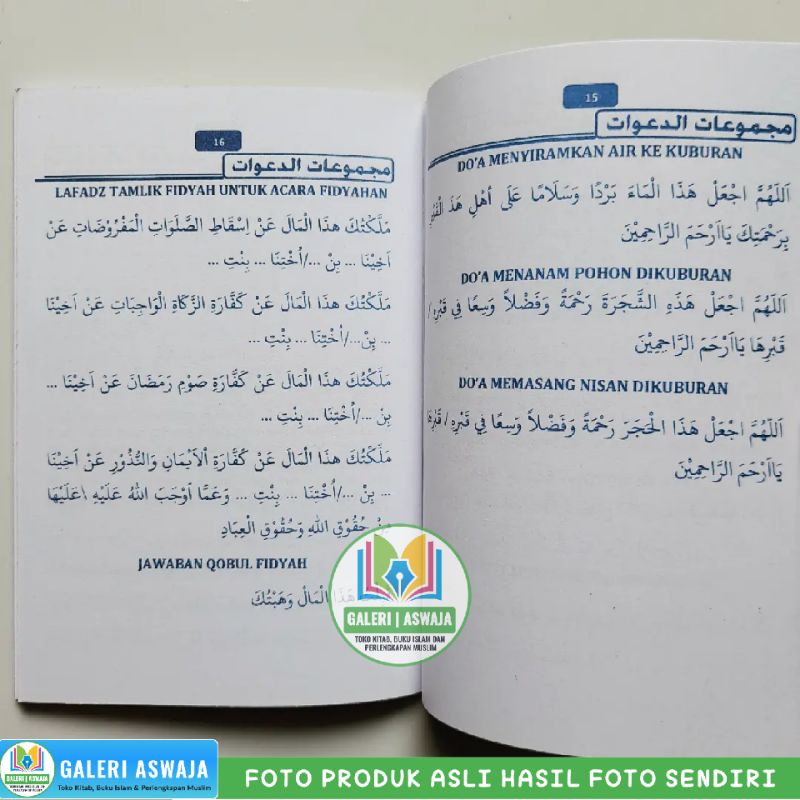 15
مجموعات الدعوات
DO'A MENYIRAMKAN AIR KE KUBURAN
اَللّٰهُمَّ اجْعَلْ هَذَا الْمَاءَ بَرْدًا وَسَلَامًا عَلَى أَهْلِ هَذَ الْقَبْرِ
بِرَحْمَتِكَ يَااَرْحَمَ الرَّاحِمِيْنَ
DO'A MENANAM POHON DIKUBURAN
اَللّٰهُمَّ اجْعَلْ هَذِهِ الشَّجَرَةَ رَحْمَةً وَفَضْلاً وَسِعًا فِي قَبْرِهِ /
قَبْرِهَا يَااَرْحَمَ الرَّاحِمِيْنَ
DO'A MEMASANG NISAN DIKUBURAN
اَللّٰهُمَّ اجْعَلْ هَذَا الْحَجَرَ رَحْمَةً وَفَضْلاً وَسِعًا فِي قَبْرِهِ / قَبْرِهَا
يَااَرْحَمَ الرَّاحِمِيْنَ
16
مجموعات الدعوات
LAFADZ TAMLIK FIDYAH UNTUK ACARA FIDYAHAN
مَلَّكْتُكَ هذَا الْمَالَ عَنْ اِسْقَاطِ الصَّلَوَاتِ الْمَفْرُوْضَاتِ عَنْ
اَخِيْنَا ... بِنْ .../اُخْتِنَا ... بِنْتِ ...
مَلَّكْتُكَ هذَا الْمَالَ عَنْ كَفَّارَةِ الزَّكَاةِ الْوَاجِبَاتِ عَنْ اَخِيْنَا
... بِنْ.../اُخْتِنَا ... بِنْتِ ...
مَلَّكْتُكَ هذَا الْمَالَ عَنْ كَفَّارَةِ صَوْمِ رَمَضَانَ عَنْ اَخِيْنَا ...
بِنْ .../اُخْتِنَا ... بِنْتِ ...
مَلَّكْتُكَ هذَا الْمَالَ عَنْ كَفَّارَةِ اْلاَيْمَانِ وَالنُّذُوْرِ عَنْ اَخِيْنَا
... بِنْ .../اُخْتِنَا ... بِنْتِ ... وَعَمَّا اَوْجَبَ اللهُ عَلَيْهِ \عَلَيْهَا
مِنْ حُقُوْقِ اللهِ وَحُقُوْقِ الْعِبَادِ
JAWABAN QOBUL FIDYAH
هَذَا الْمَالْ وَهَبْتُكَ
GALERI | ASWAJA
TOKO KITAB, BUKU ISLAM DAN
PERLENGKAPAN MUSLIM
GALERI ASWAJA
Toko Kitab, Buku Islam & Perlengkapan Muslim
FOTO PRODUK ASLI HASIL FOTO SENDIRI